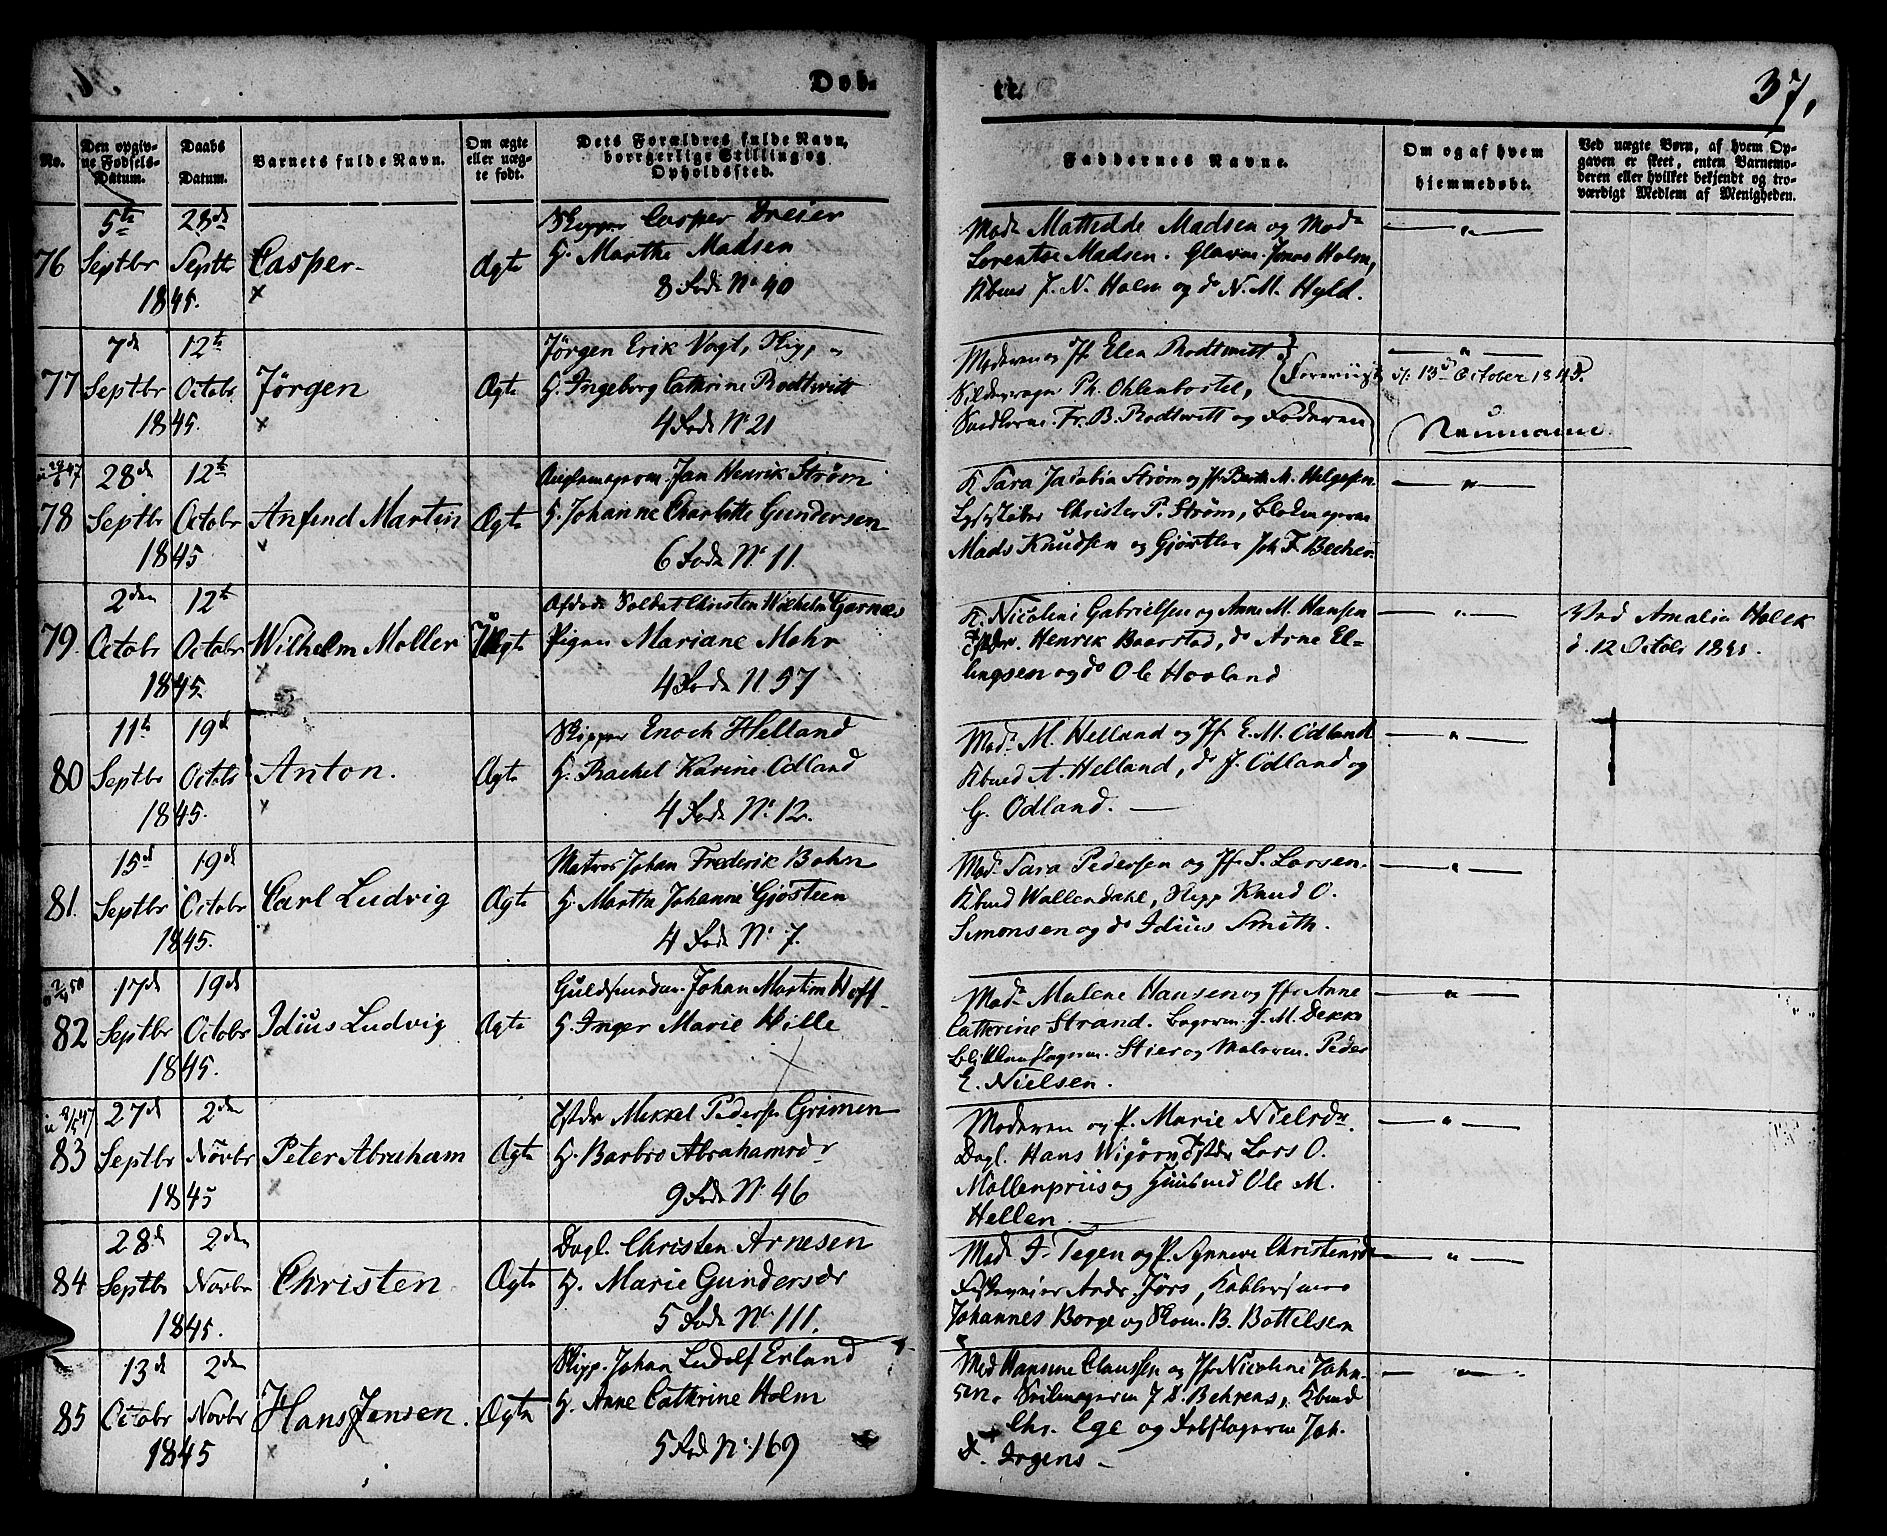 Døb-
te.
37.
No.
Den opgiv-
ne Fødsels-
Datum.
Daabs
Datum.
Barnets fulde Navn.
Om ægte
eller uæg-
te født.
Dets Forældres fulde Navn,
borgerlige Stilling og
Opholdssted.
Faddernes Navne.
Om og af hvem
hjemmedøbt.
Ved uægte Børn, af hvem Op-
gaven er skeet, enten Barnemo-
deren eller hvilket bekjendt og tro-
værdigt Medlem af Menigheden.
76
5te Septbr 1845.
28de Septbr
Casper
Ægte
Skipper Casper Dreier
H. Marthe Madsen
8 Rode No 40
Mad. Mathilde Madsen og Mad.
Lorentse Madsen. Glarm. Jonas Holm,
Kbmd J. N. Holm og do N. M. Hyld.
77
7de Septbr 1845.
12te Octobr
Jørgen
Ægte
Jørgen Erik Vogt,
H. Ingeborg Cathrine Rodtwitt
4 Rode No 21
Moderen og Jf. Elen Rodtwitt
Ph. Ohlenbostel,
Fr. B. Rodtwitt og Faderen
13de October 1845.
Neumann
78
28de Septbr 1845
12te Octobr
Anfind Martin
Ægte
Jan Henrik Strøm
H. Johanne Charlotte Gundersen
6 Rode No 11.
K. Sara Jacobia Strøm og Jf. Berth M. Helgesen
Christer P. Strøm, Blokmageren
Mads Knudsen og Gjørtler Joh. F. Becher
79.
2den Octobr 1845.
12te Octobr
Wilhelm Møller
Uægte
Afdøde Soldat Christen Wilhelm Garnæs
Pigen Mariane Mohr
4 Rode N 57
K. Nicolini Gabrielsen og Anne M. Hansen
Henrik Baarstad, do Arne El-
lingsen og do Ole Hovland
Ved Amalia Holck
d. 12 Octobr 1845.
80
11te Septbr 1845.
19de Octobr
Anton.
Ægte
Skipper Enoch Helland
H. Rachel Karine Odland
4 Rode No 12.
Mad. M. Helland og Jf. E. M. Odland
Kbmd A. Helland, do J. Odland og
G. Odland.
81.
15de Septbr 1845.
19de Octobr
Carl Ludvig
Ægte
Matros Johan Frederik Bohn
H. Martha Johanne Gjøsteen
4 Rode No 7.
Mad. Sara Pedersen og Jf. S. Larsen.
Kbmd Wallendahl, Skipp Knud O.
Simonsen og do Idius Smith.
82
17de Septbr 1845.
19de Octobr
Idius Ludvig
Ægte
Guldsmed Johan Martin Hoff
H. Inger Marie Hille
Mad. Malene Hansen og Jfr. Anne
Cathrine Strand. Bagerm. J. M. Dekke
Blikkenslagerm. Stier og Malerm. Peder
E. Nielsen.
83
27de Septbr 1845
2den Novbr
Peter Abraham
Ægte
Mikkel Peders. Grimen
H. Barbro Abrahamsdr
9 Rode No 46
Moderen og P. Marie Nielsdr.
Dagl. Hans Wigørn Lars O.
Møllenpriis og Huusmd Ole M.
Hellen
84
28de Septbr 1845.
2den Novbr
Christen
Ægte
Dagl. Christen Arnesen
H. Marie Gundersdr
5 Rode No 111.
Mad. J. Tegen og P. Synneve Christensdr
Andr. Jørs,
Johannes Borge og Skom. B. Bottelsen
85
13de Octobr 1845
2den Novbr
Hans Jensen.
Ægte
Skipp. Johan Ludolf Erland
H. Anne Cathrine Holm
5 Rode No 169
Mad Hansine Claussen og Jfr. Nicoline John-
sen. Seilmagerm J. D. Behrens, Kbmd
Chr. Ege og Rebslagerm Joh.
D. Irgens